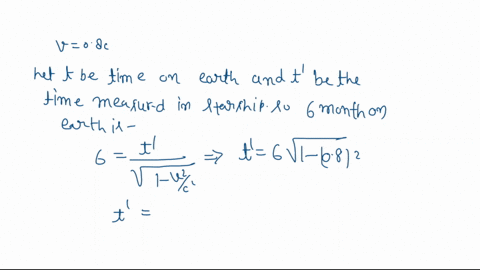 v = 0.8c
Let t be time on earth and t' be the
time measured in starship. so 6 month on
earth is -
6 = t' / √(1 - v²/c²) ⇒ t' = 6 √(1 - (0.8)²)
t' =